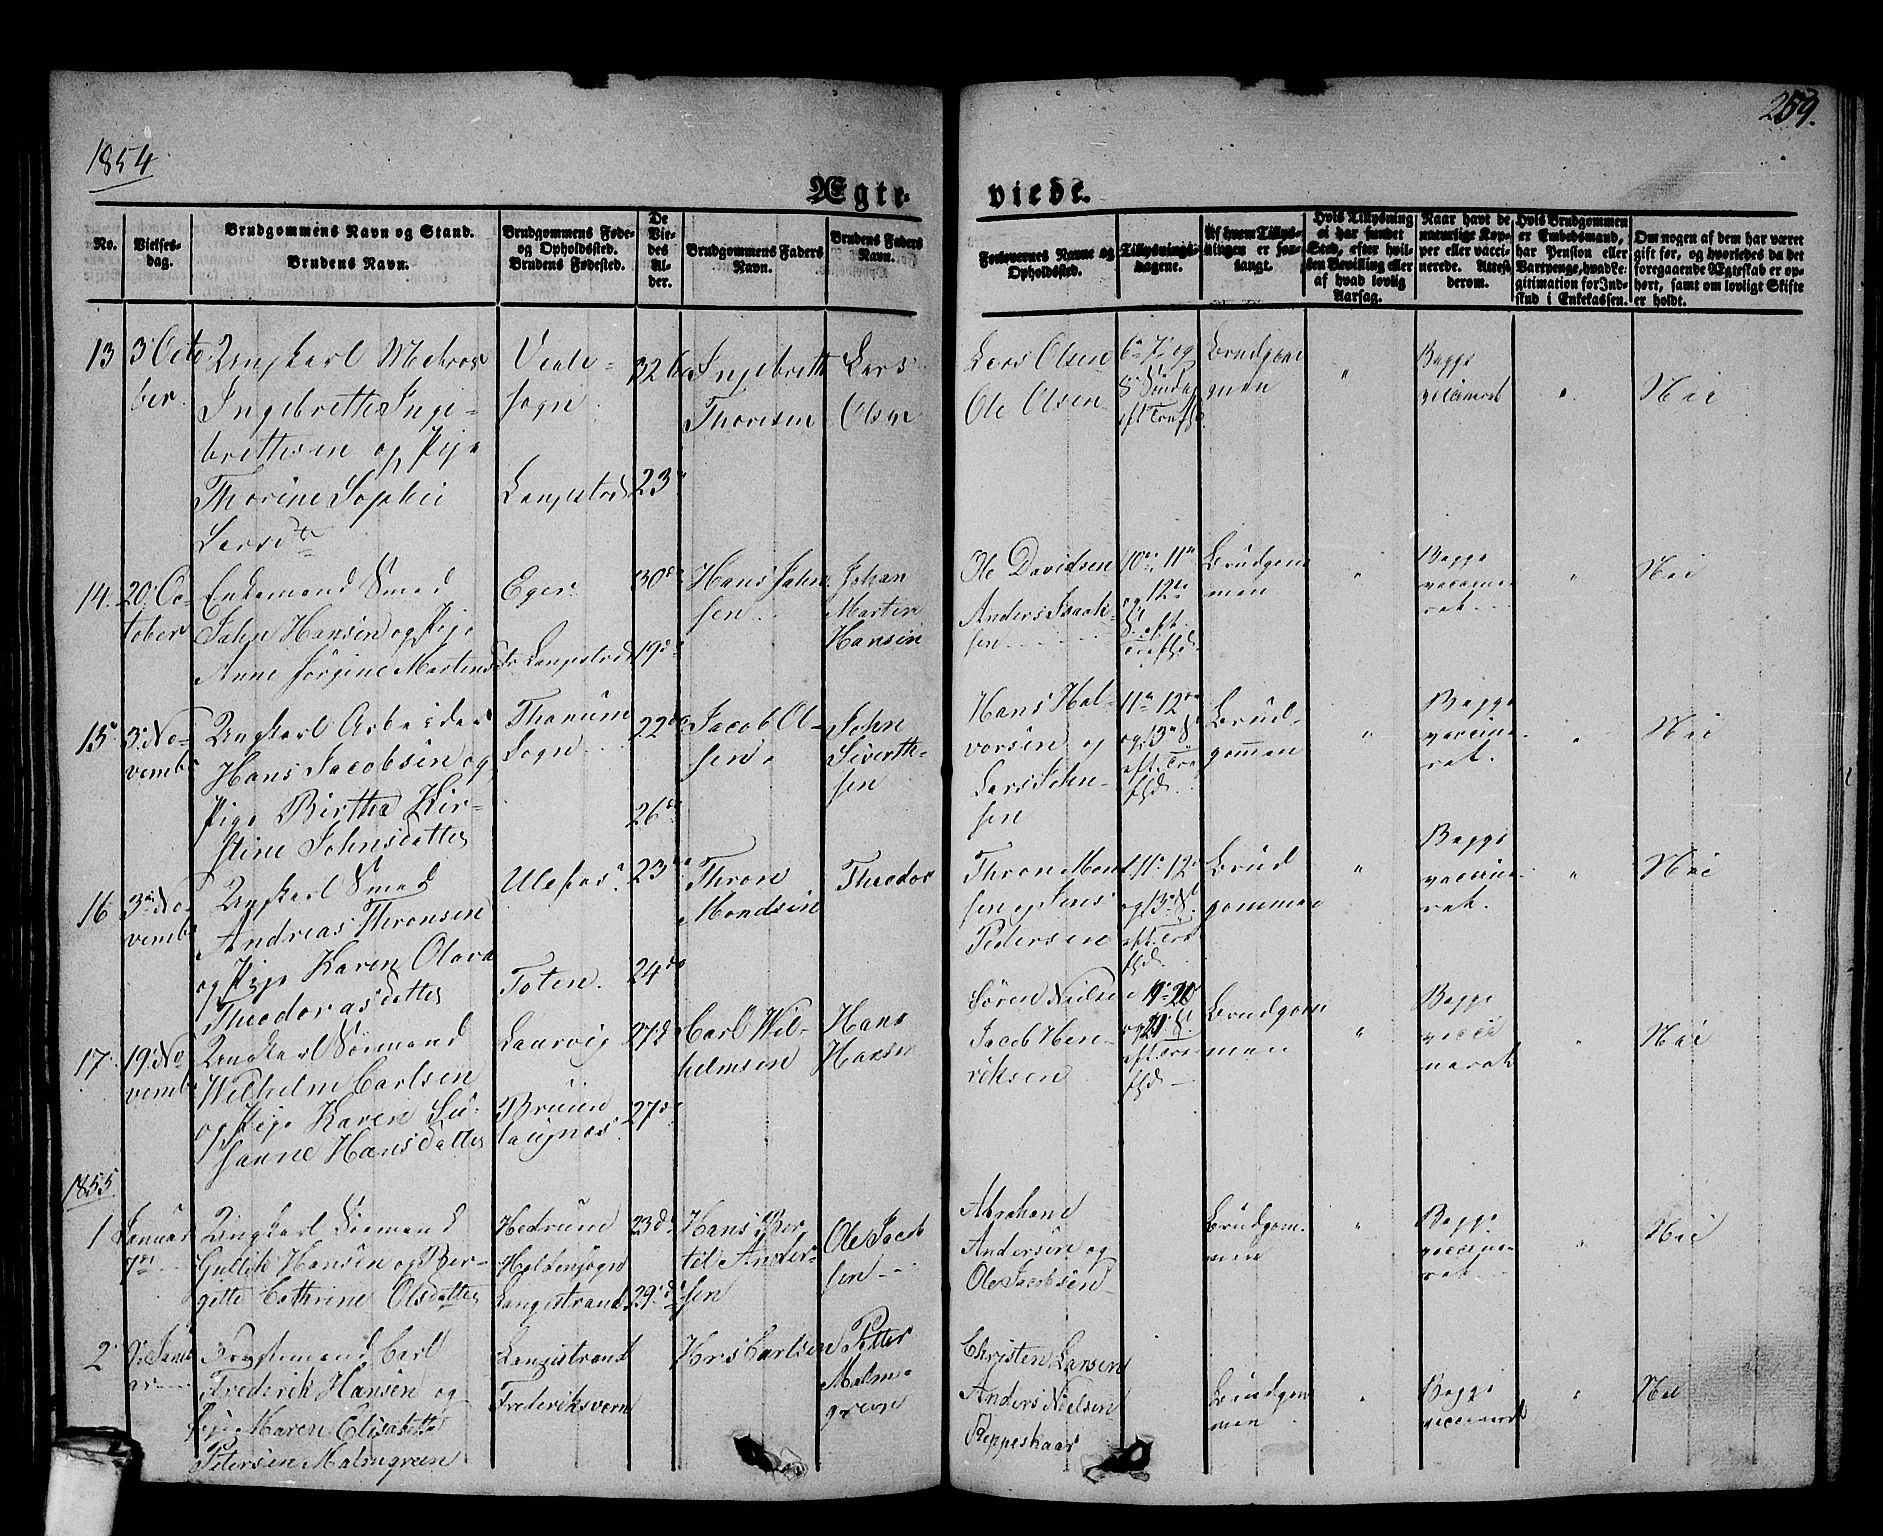 1854
259.
Ægte-
viede.
No.
Vielses-
dag.
Brudgommens Navn og Stand.
Brudens Navn.
Brudgommens Føde-
og Opholdssted.
Brudens Fødested.
De
Vie-
des
Al-
der.
Brudgommens Faders
Navn.
Brudens Faders
Navn.
Forlovernes Navne og
Opholdssted.
Tillysnings-
dagene.
Af hvem Tillys-
ningen er for-
langt.
Hvis Tillysning
ei har fundet
Sted, efter hvil-
ken Bevilling eller
af hvad lovlig
Aarsag.
Naar havt de
naturlige Kop-
per eller vacci-
nerede. Attest
derom.
Hvis Brudgommen
er Embedsmand,
har Pension eller
Vartpenge, hvad Le-
gitimation for Ind-
skud i Enkekassen.
Om nogen af dem har været
gift før, og hvorledes da det
foregaaende Ægteskab er op-
hørt, samt om lovligt Skifte
er holdt.
13 3 Octo-
ber
Ungkarl Matros
Ingebrett Inge-
brettesen og Pige
Thorine Sophie
Larsd
sogn
Langestrand
32
23
Ingebrett
Thoresen
Lars
Olsen
Lars Olsen
Ole Olsen
6 7 og
8 Søndag
eft Trefh.
Brudgom
men
"
Begge
vaccineret
Nei
14. 20 Oc-
tober
Enkemand Smed
Jahn Hansen og Pige
Anne Jørgine Martens
Eger
Langestrand
30
19
Hans Jahn
sen
Johan
Martin
Hansen
Ole Davidsen
Anders Isaak-
sen
10 11
og 12
S. eft
Trefhd.
Brudgom
men
"
Begge
vaccine-
ret
"
Nei
15 3 No-
vemb
Ungkarl Arbeider
Hans Jacobsen og
Pige Birthe Kir-
stine Johnsdatter
Thanum
Sogn
22
26
Jacob Ol-
sen
John
Siverth-
sen
Hans Hal-
vorsen og
Lars John-
sen
11 12
og 13 S
eft. Tre
fhd.
Brud-
gommen
"
Begge
vaccine-
ret.
"
Nei
16 3 No-
vemb
Ungkarl Smed
Andreas Thronsen
og Pige Karen Olava
Theodorasdatter
Ulefos
Toten.
23
24
Thron
Mondsen
Theodor
Thron Mond
sen og Jens
Pedersen
11 12
og 13 S
eft. Tre
fhd.
Brud
gommen
"
Begge
vaccine-
ret.
"
Nei
17 19 No
vemb
Ungkarl Sømand
Wilhelm Carlsen
og Pige Karen Su-
sanne Hansdatter
Laurvig
27
27
Carl Wil-
helmsen
Hans
Hansen
Søren Nielsen
Jacob Hen-
riksen
19 20
og 21 S.
eft Tre
fhd.
Brudgom
men
"
Begge
vacci
neret
"
Nei
1855
1 Januar
7
Ungkarl Sømand
Gullik Hansen og Ber-
gette Cathrine Olsdatter
Hedrum
Langestrand
23
29
Hans Ber
til Ander-
sen
Ole Jacob
sen
Abraham
Andersen og
Ole Jacobsen
Brudgom-
men
"
Begge
vaccine-
ret
"
Nei
2 Janu
ar
Carl
Frederik Hansen og
Pige Maren Elisabeth
Petersen Malmgreen
Langestrand
Frederiksvern
Hans Carlsen
Petter
Malm-
green
Christen Larsen
Anders Nielsen
Reppeskaar
Brudgom
men
"
Begge
vaccineret
"
Nei